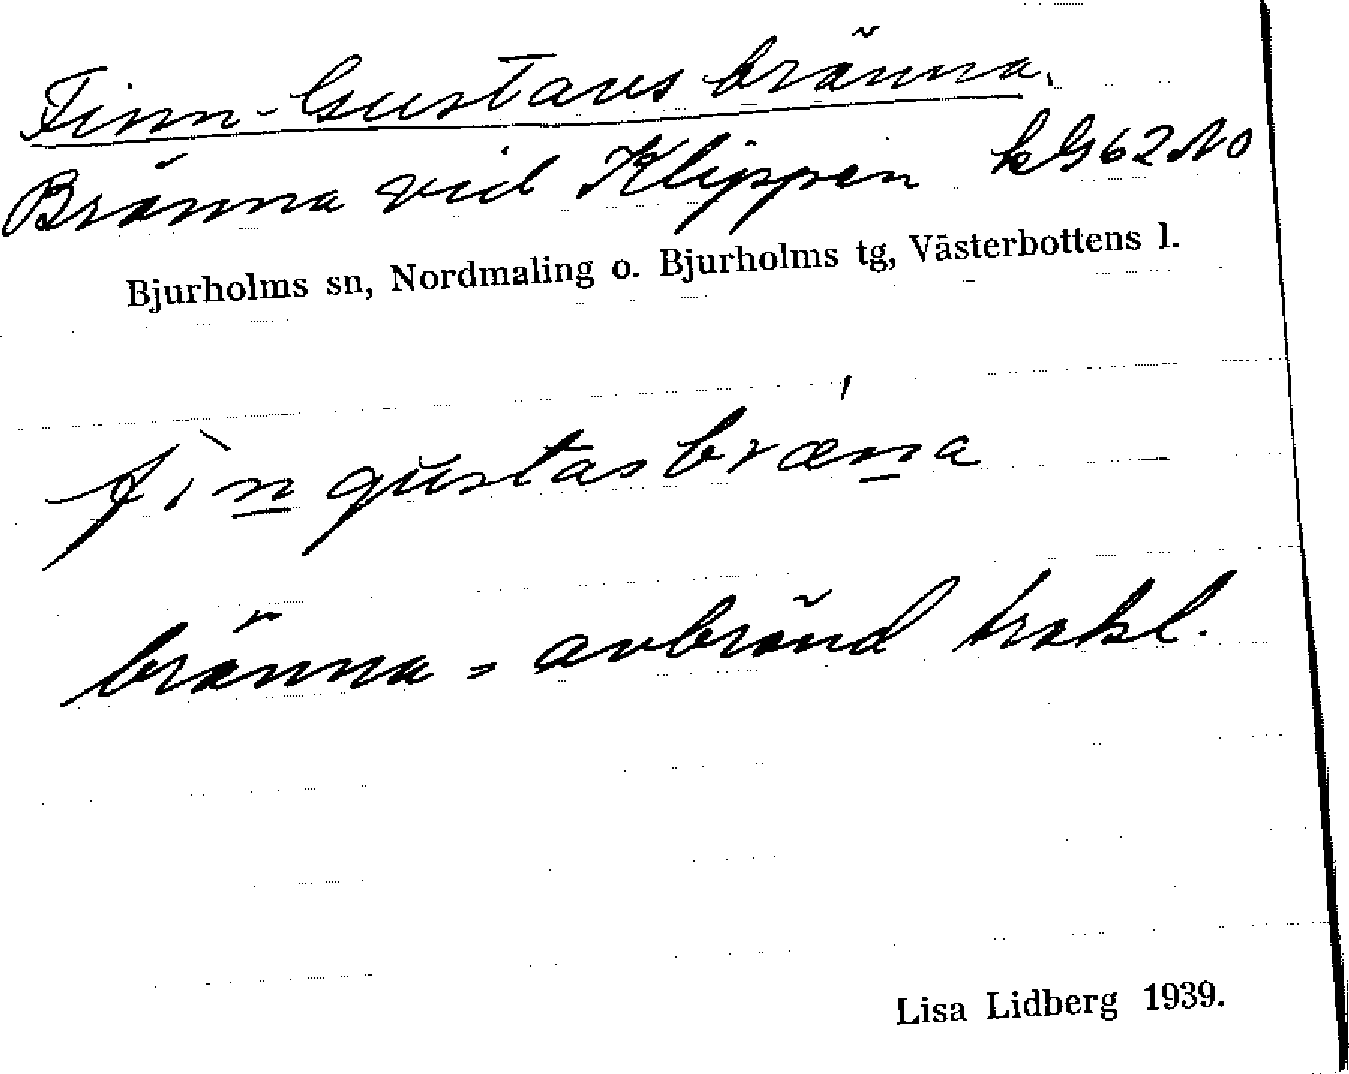 Finn-Gustavsbränna.
Bränna vid Klippen kG62No
Bjurholms sn, Nordmaling o. Bjurholms tg, Västerbottens l.
fìngustasbræ´na
bränna = avbränd trakt.
Lisa Lidberg 1939.